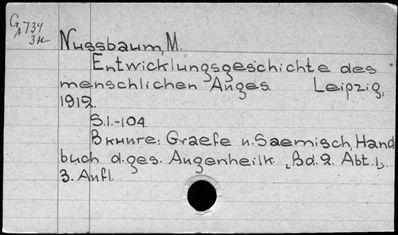 G 734
3н
Nussbaum, M.
Entwicklungsgeschichte des
menschlichen Auges Leipzig,
1912.
S.1.-104
Вкниге: Graefe u. Saemisch, Hand
buch d. ges. Augenheilk. Bd. 2. Abt. 1.
3. Aufl.